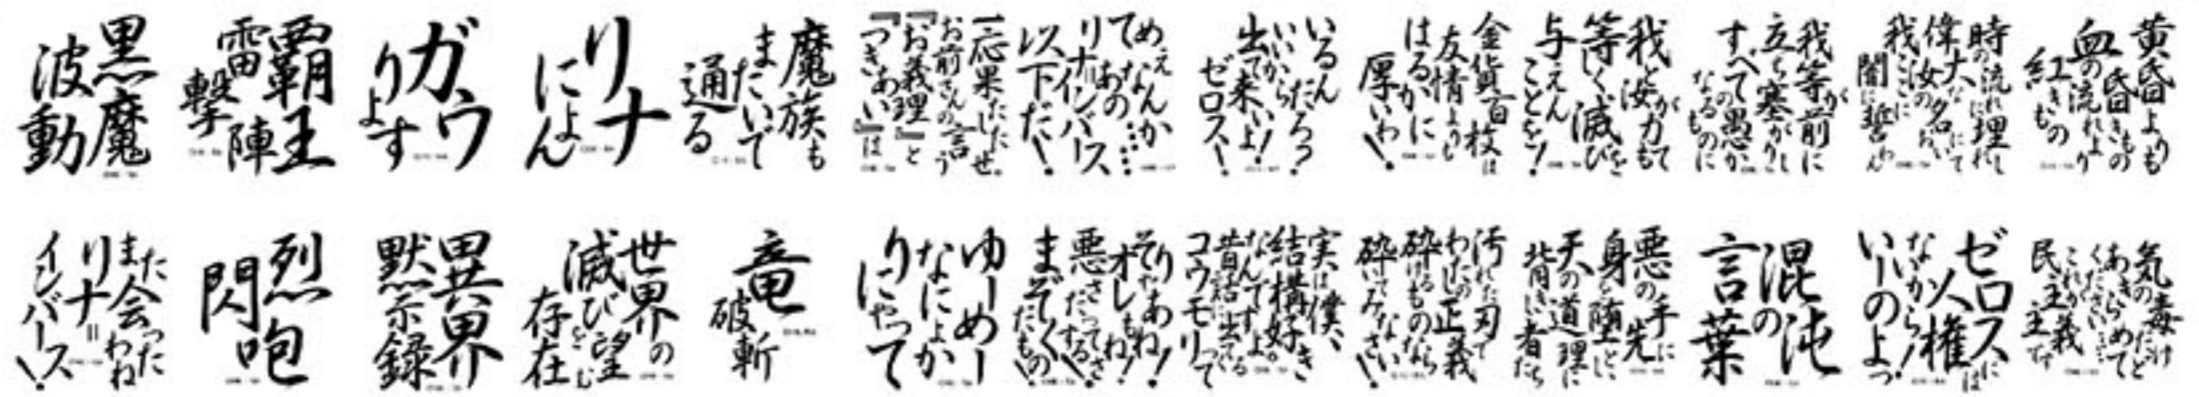 黄昏よりも
昏きもの
血の流れより
紅きもの
時の流れに埋れし
偉大な汝の名において
我ここに
闇に誓わん
我等が前に
立ち塞がりし
すべての愚かなるものに
我と汝が力もて
等しく滅びを
与えんことを!
金貨百枚は
友情よりも
はるかに
厚いわ!
いるんだろ?
いいから
出て来いよ!
ゼロス!
めぇなんか
てあの……
リナ=インバース
以下だ!
一応果たしたぜ
お前さんの言う
『お義理』と
『つきあい』は
魔族も
またいで
通る
リナ
によん
ガウ
りょす
覇王
雷陣
撃
黒魔
波動
気の毒だけど
あきらめて
ください…
これが
民主主義です
ゼロスには
人権
ないから!
いーのよっ
混沌の
言葉
悪の手先に
身を堕とし
天の道理に
背きし者たち
汚れた刃で
わたしの正義
砕けるものなら
砕いてみなさい!
実は僕、
結構好き
なんですよ。
昔話に出てくる
コウモリって
そりゃあね!
オレもね!
悪さだってするさ
まぞくだもの
ゆーめー
なによか
りにゃって
竜
破斬
世界の
滅びを望む
存在
異界
黙示録
烈
閃咆
また会ったわね
リナ=
インバース!